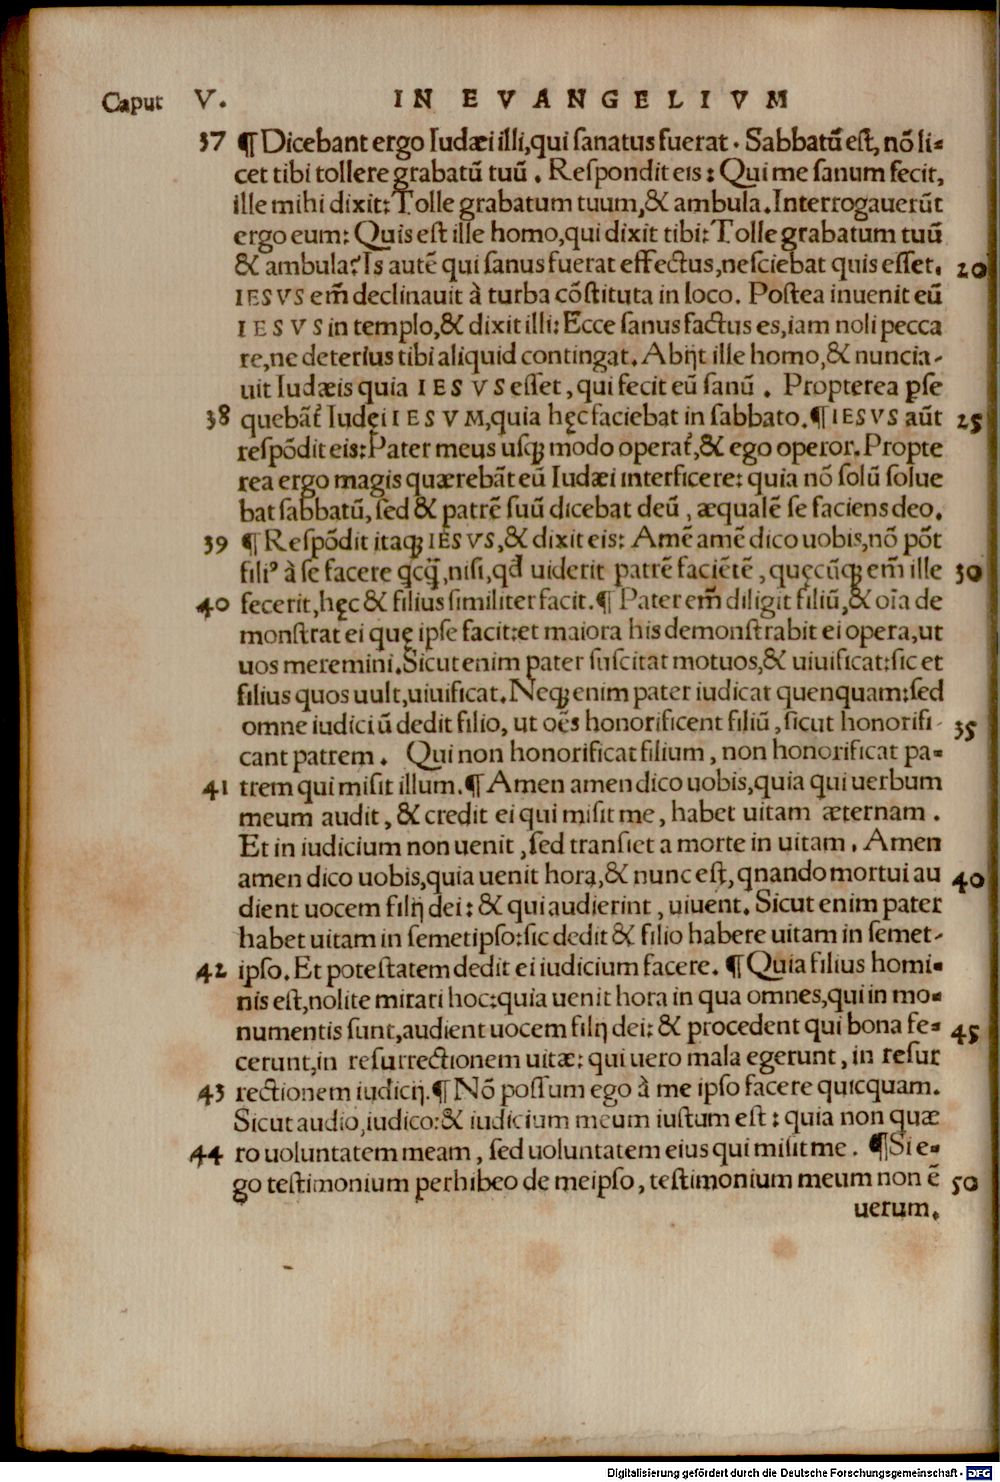 Caput V. IN EVANGELIVM
37 ¶ Dicebant ergo Iudæi illi,qui ſanatus fuerat . Sabbatū eſt, nō li-
cet tibi tollere grabatū tuū . Reſpondit eis : Qui me ſanum fecit,
ille mihi dixit: Tolle grabatum tuum,& ambula.Interrogauerūt
ergo eum: Quis eſt ille homo,qui dixit tibi: Tolle grabatum tuū
& ambula? Is autē qui ſanus fuerat effectus,neſciebat quis eſſet. 20
IESVS em̄ declinauit à turba cōſtituta in loco. Poſtea inuenit eū
IESVS in templo,& dixit illi: Ecce ſanus factus es,iam noli pecca
re,ne deterius tibi aliquid contingat. Abijt ille homo,& nuncia-
uit Iudæis quia IESVS eſſet, qui fecit eū ſanū . Propterea pſe
38 quebāt᷑ Iudęi IESVM,quia hęc faciebat in ſabbato.¶ IESVS aūt 25
reſpōdit eis: Pater meus uſqꝫ modo operat᷑,& ego operor. Propte
rea ergo magis quærebāt eū Iudæi interficere: quia nō ſolū ſolue
bat ſabbatū, ſed & patrē ſuū dicebat deū , æqualē ſe faciens deo.
39 ¶ Reſpōdit itaqꝫ IESVS,& dixit eis: Amē amē dico uobis,nō pōt
filiꝰ à ſe facere qcq̄,niſi,qd̄ uiderit patrē faciētē , quęcūqꝫ em̄ ille 30
40 fecerit,hęc & filius ſimiliter facit.¶ Pater em̄ diligit filiū,& oīa de
monſtrat ei quę ipſe facit:et maiora his demonſtrabit ei opera,ut
uos meremini.Sicut enim pater ſuſcitat motuos,& uiuificat:ſic et
filius quos uult,uiuificat.Neqꝫ enim pater iudicat quenquam:ſed
omne iudiciū dedit filio, ut oēs honorificent filiū , ſicut honorifi- 35
cant patrem . Qui non honorificat filium , non honorificat pa-
41 trem qui miſit illum.¶ Amen amen dico uobis,quia qui uerbum
meum audit , & credit ei qui miſit me , habet uitam æternam .
Et in iudicium non uenit , ſed tranſiet a morte in uitam . Amen
amen dico uobis,quia uenit hora,& nunc eſt, qnando mortui au 40
dient uocem filij dei : & qui audierint , uiuent. Sicut enim pater
habet uitam in ſemetipſo:ſic dedit & filio habere uitam in ſemet-
42 ipſo. Et poteſtatem dedit ei iudicium facere. ¶ Quia filius homi-
nis eſt,nolite mirari hoc:quia uenit hora in qua omnes,qui in mo-
numentis ſunt,audient uocem filij dei: & procedent qui bona fe- 45
cerunt,in reſurrectionem uitæ: qui uero mala egerunt , in reſur
43 rectionem iudicij.¶ Nō poſſum ego à me ipſo facere quicquam.
Sicut audio,iudico:& iudicium meum iuſtum eſt : quia non quæ
44 ro uoluntatem meam , ſed uoluntatem eius qui miſit me . ¶ Si e-
go teſtimonium perhibeo de meipſo , teſtimonium meum non ē 50
uerum.
Digitalisierung gefördert durch die Deutsche Forschungsgemeinschaft - DFG